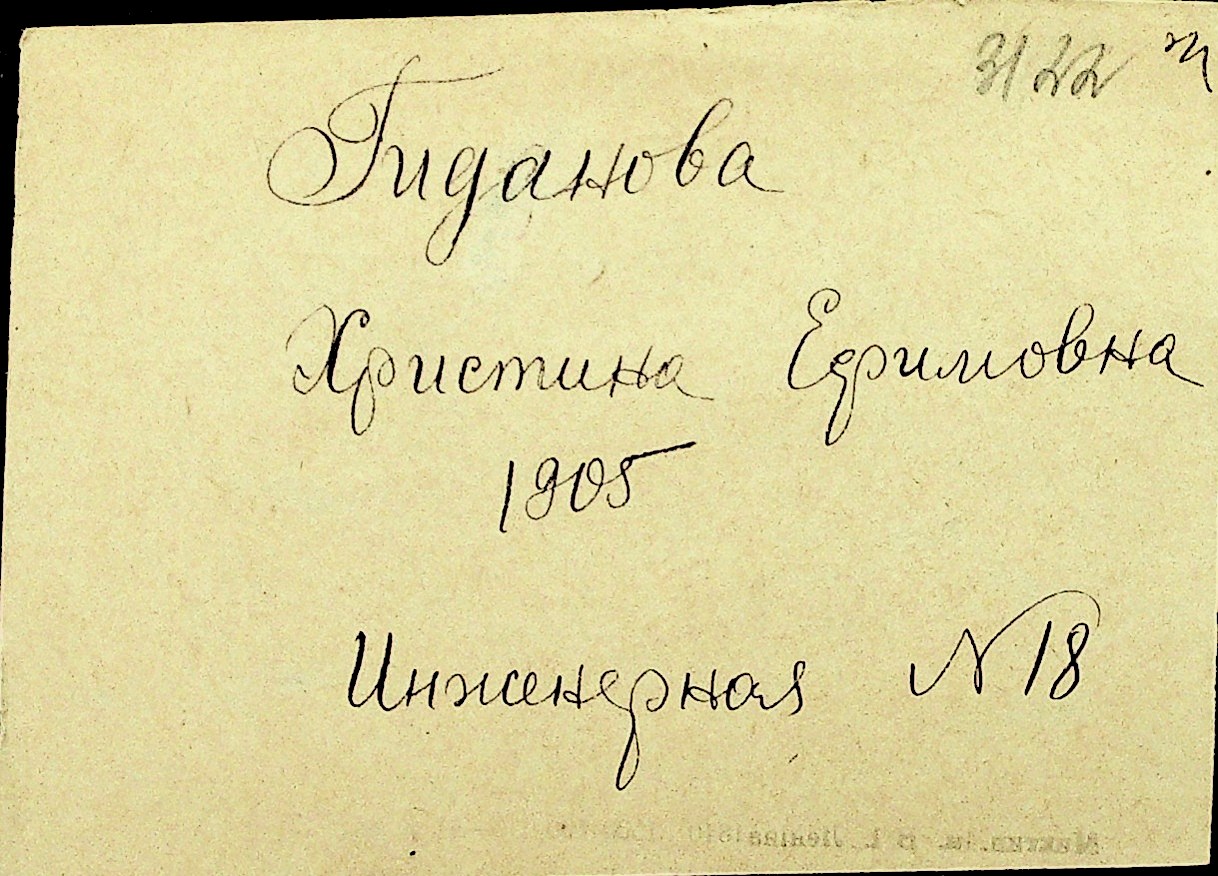 3122
Гиданова
Христина Ефимовна
1905
Инженерная N 18